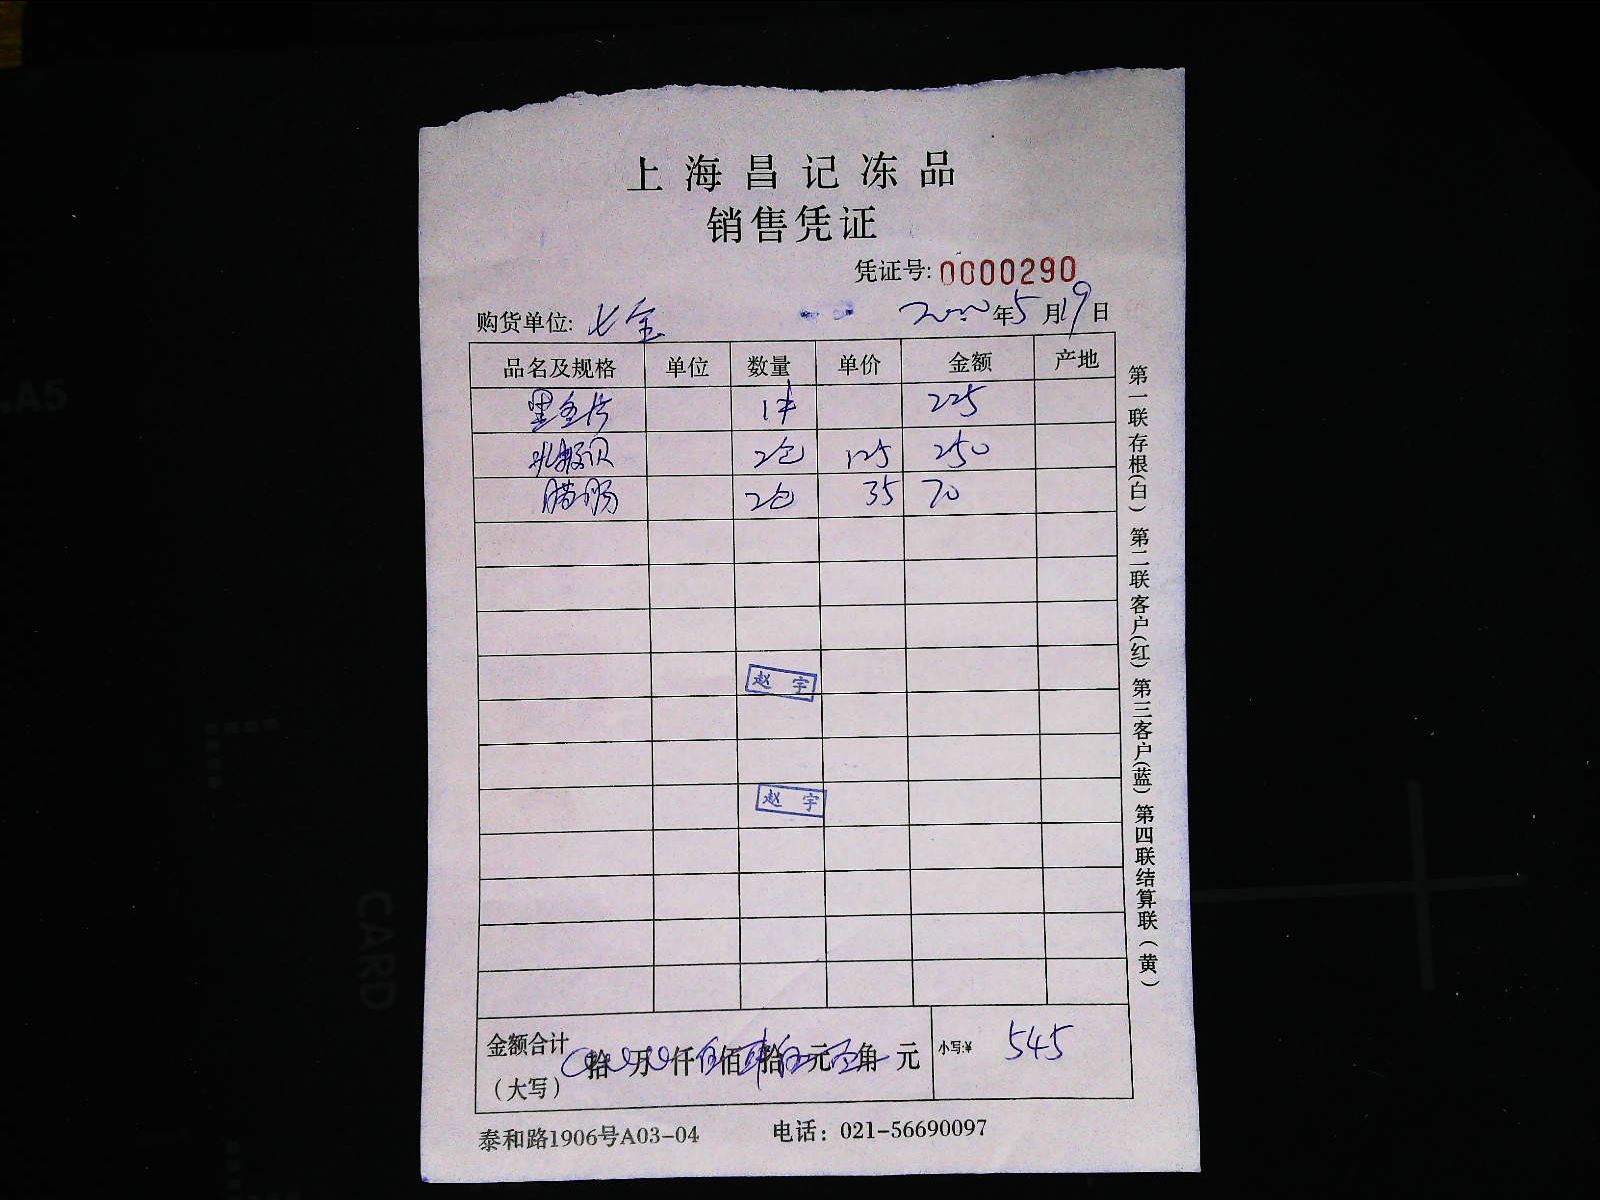 上海昌记冻品
销售凭证
凭证号: 0000290
购货单位: 七宝 年5月19日
品名及规格 单位 数量 单价 金额 产地
1件 225
2包 125 250
腊肠 2包 35 70
赵宇
赵宇
金额合计 拾 万 仟 佰 拾 元 角 元 小写:¥ 545
（大写）
泰和路1906号A03-04 电话：021-56690097
第一联存根(白) 第二联客户(红) 第三客户(蓝) 第四联结算联(黄)
A5
CARD